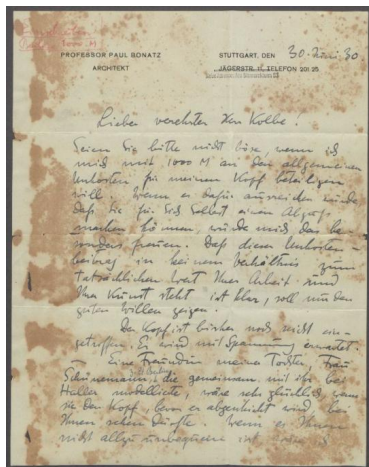 1000 M
PROFESSOR PAUL BONATZ
ARCHITEKT
STUTTGART, DEN 30. Juni 30.
JÄGERSTR. TELEFON 201 25
Lieber verehrter Herr Kolbe.
Seien Sie bitte nicht böse, wenn ich
mich mit 1000 M an den allgemeinen
Unkosten für meinen Kopf beteiligen
will. Wenn es dafür ausreichen würde
daß Sie für Sich Selbst einen Abguß
machen können, würde mich das be-
sonders freuen. Daß dieser Unkosten-
beitrag in keinem Verhältnis zum
tatsächlichen Wert Ihrer Arbeit und
Ihrer Kunst steht ist klar, soll nur den
guten Willen zeigen.
Der Kopf ist bisher noch nicht ein-
getroffen. Er wird mit Spannung erwartet.
Eine Freundin meiner Tochter, Frau
Schünemann, die gemeinsam mit ihr bei
Haller modellierte, wäre sehr glücklich, wenn
sie den Kopf, bevor er abgeschickt wird bei
Ihnen sehen dürfte. Wenn es Ihnen
nicht allzu unbequem ist